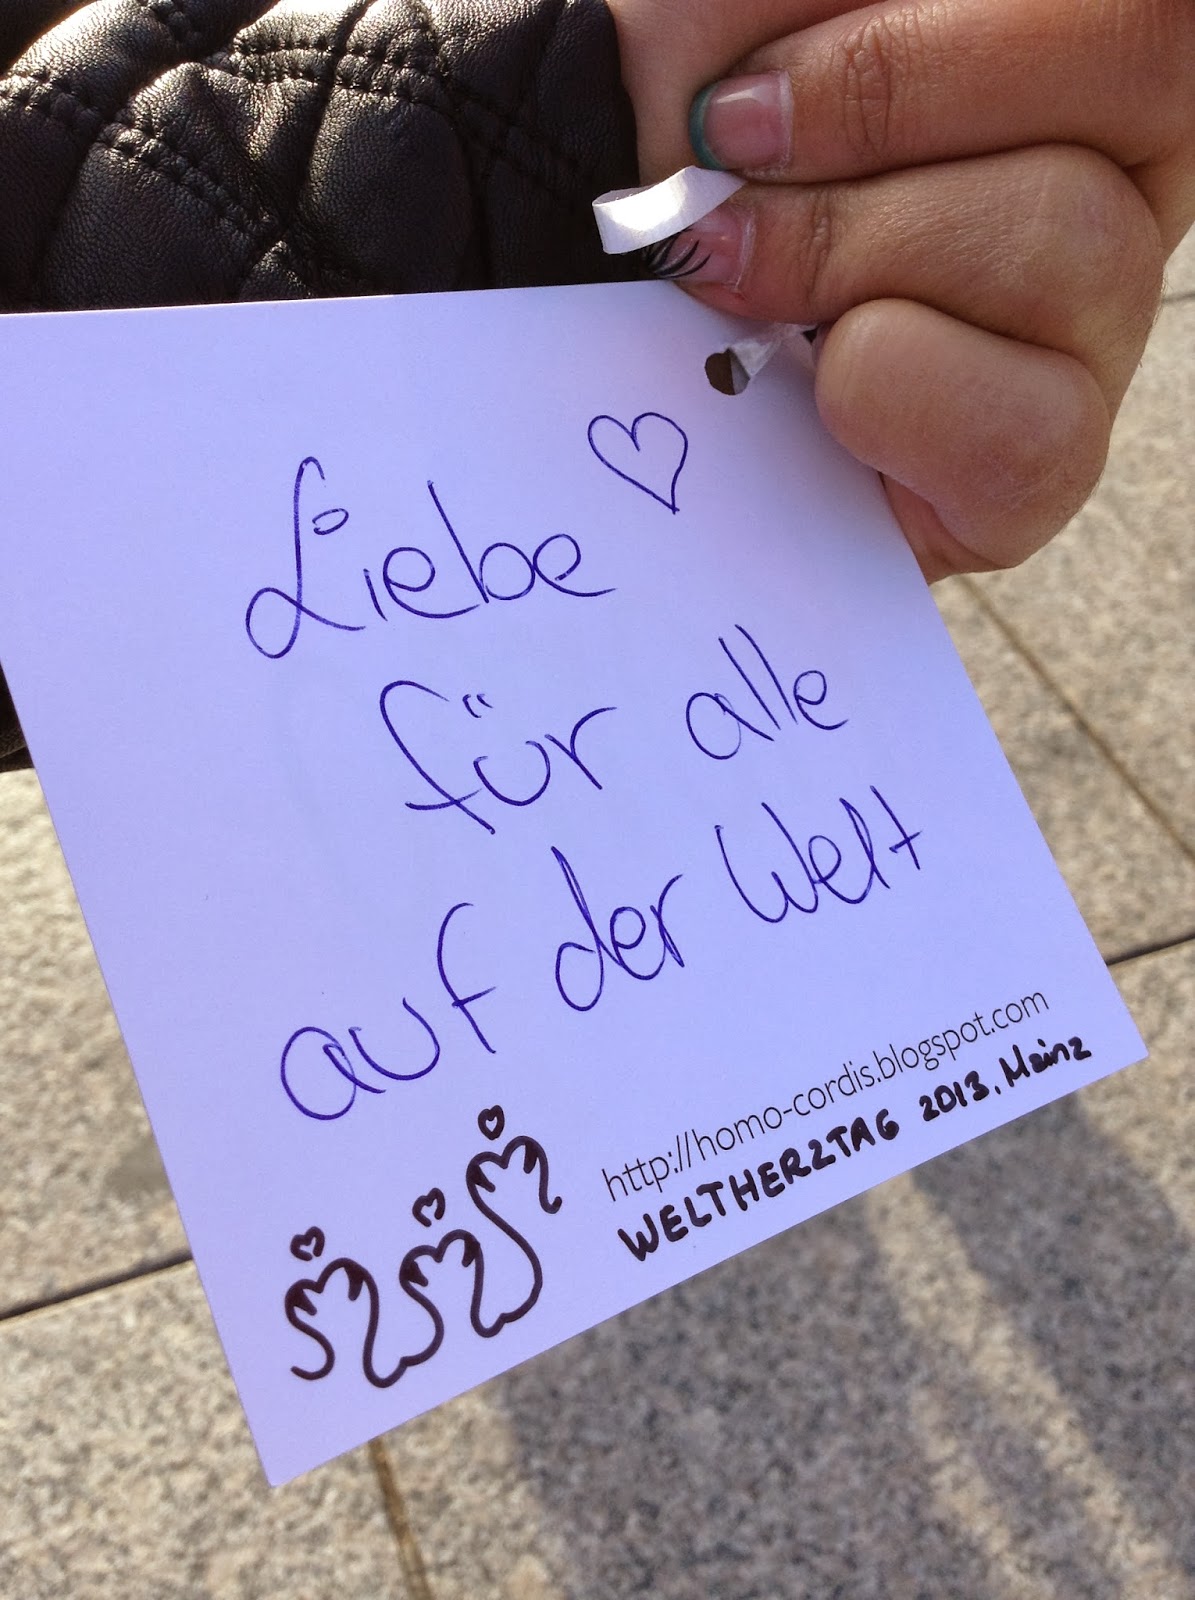 Liebe
für alle
auf der Welt
http://homo-cordis.blogspot.com
WELTHERZTAG 2013, Mainz